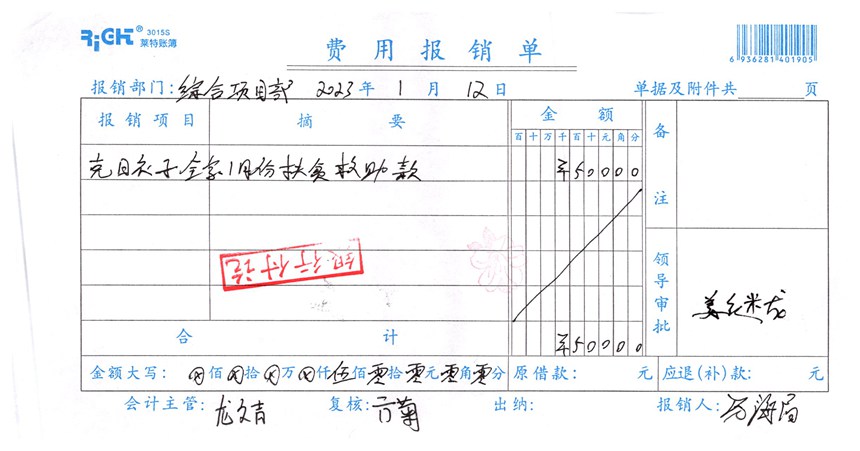 RiGHT® 3015S
莱特账簿
费用报销单
6 936281 401905
报销部门:综合项目部 2023年1月12日 单据及附件共 页
报销项目 摘要 金额 备注
百十万千百十元角分
克日衣子全家1月份扶贫救助款 ¥50000
银行付讫
领导审批
合计 ¥50000
金额大写:⊗佰⊗拾⊗万⊗仟伍佰零拾零元零角零分 原借款: 元 应退(补)款: 元
会计主管:龙文吉 复核: 出纳: 报销人: